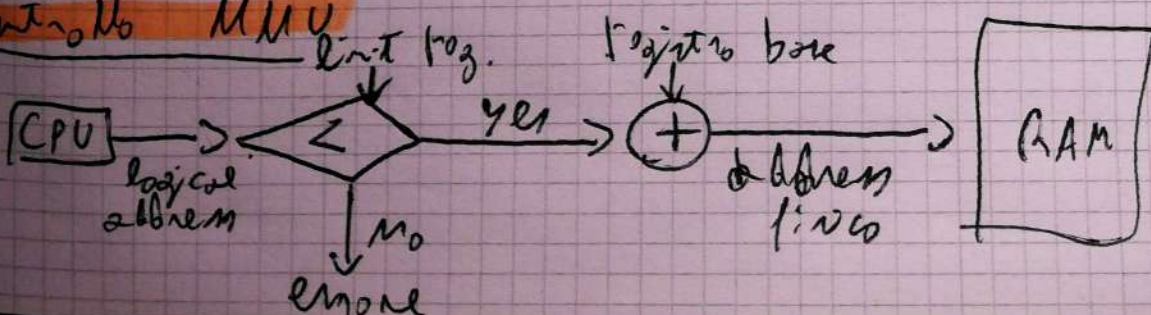 MMU
limit reg.
registro base
CPU
<
yes
+
RAM
logical
address
address
fisico
no
errore